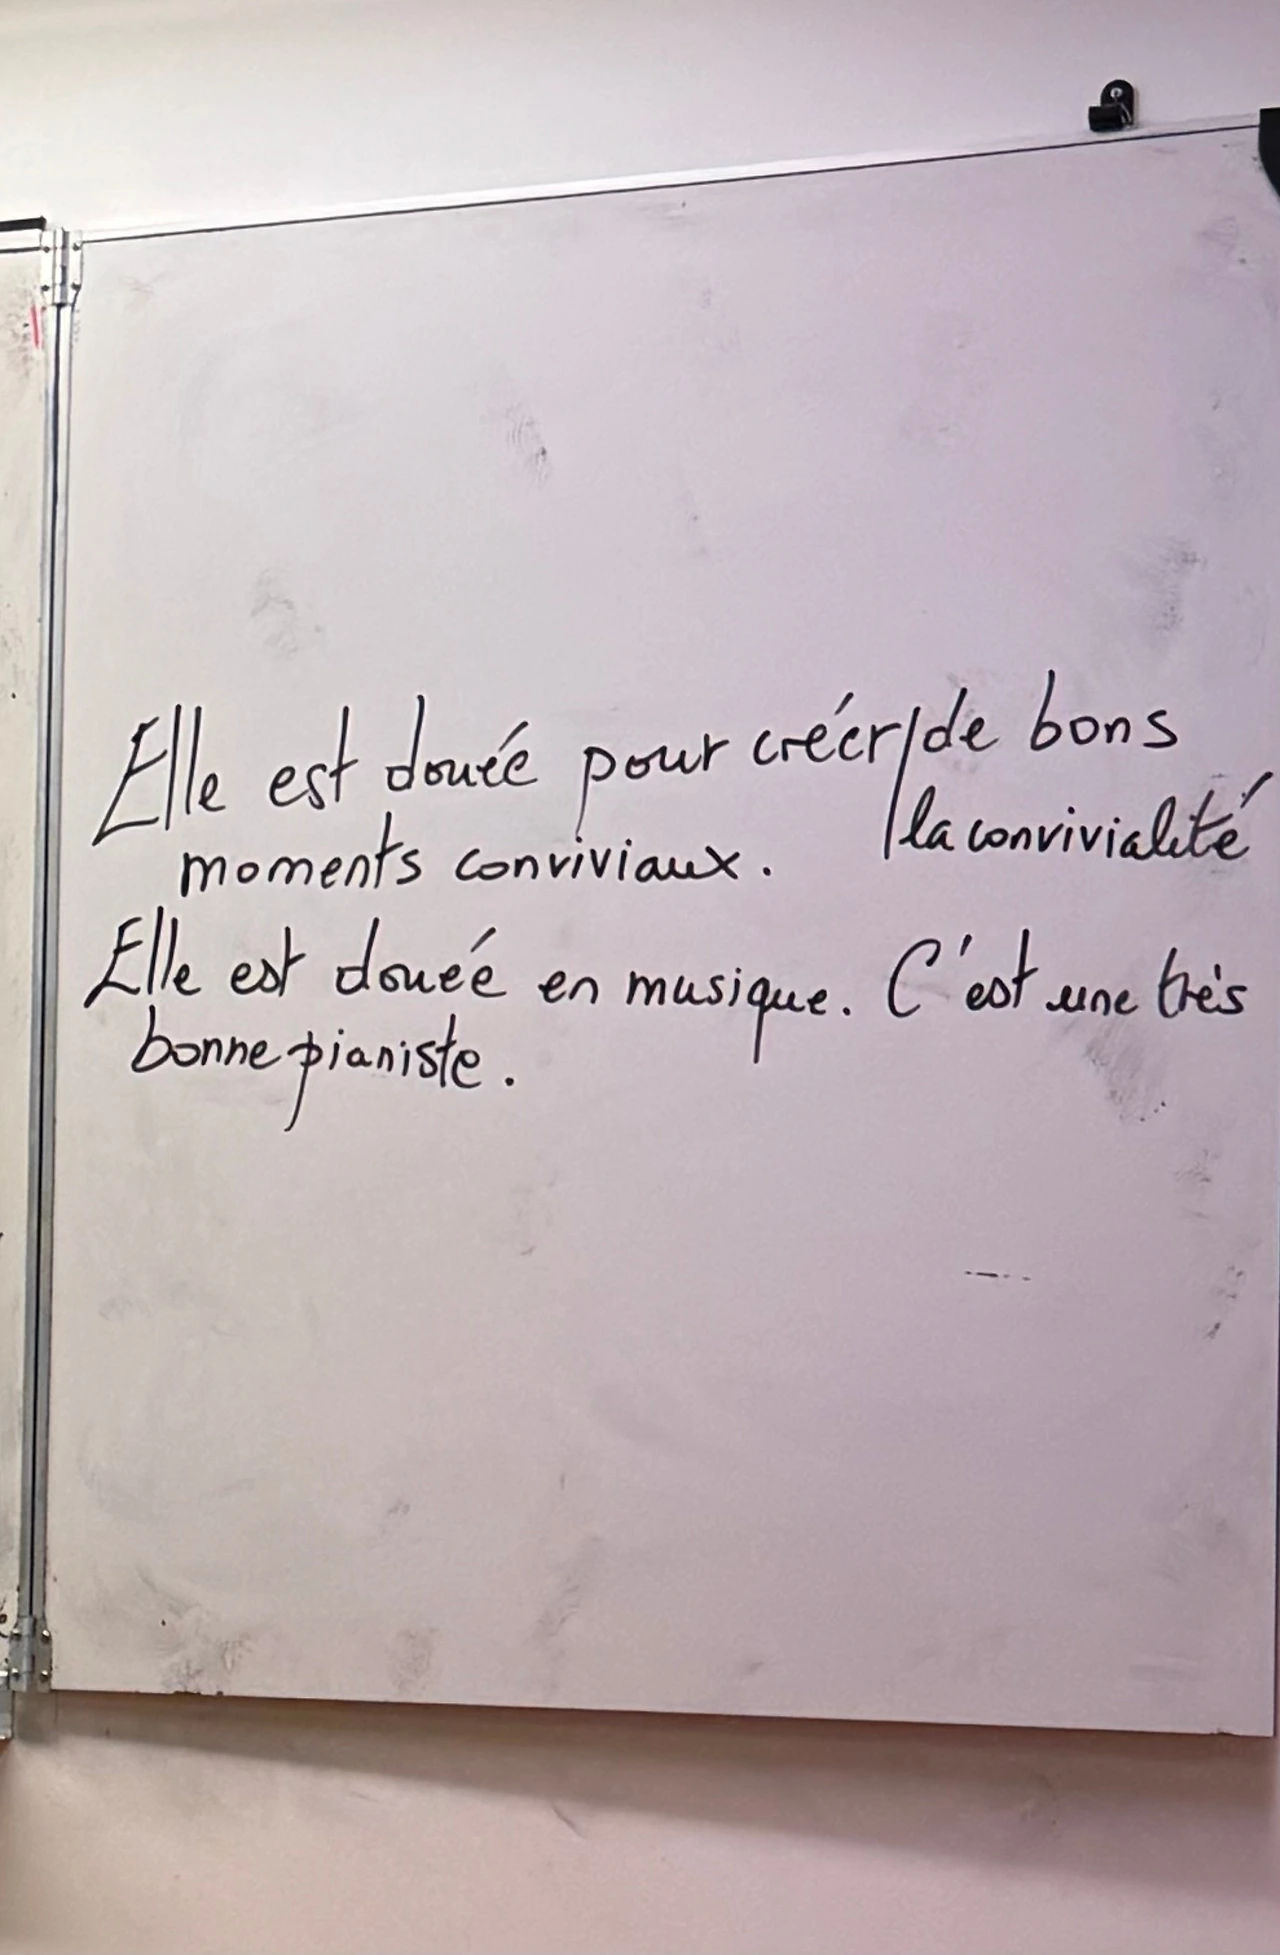 Elle est douée pour créer/de bons
moments conviviaux. /la convivialité
Elle est douée en musique. C'est une très
bonne pianiste.